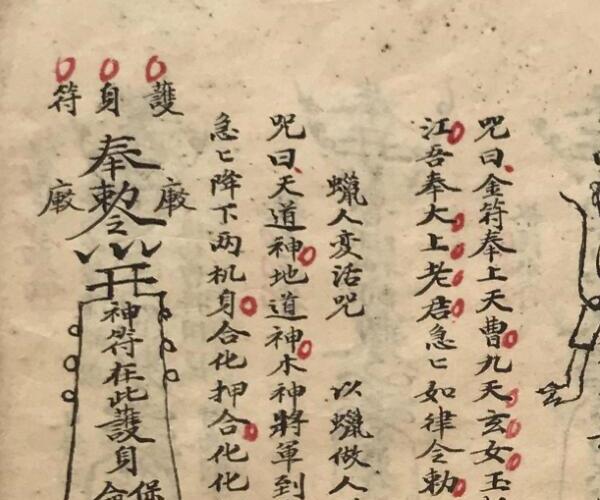 咒曰金符奉上天曹九天玄女玉
江吾奉大上老君急匕如律令勅
蠟人变活咒 以蠟做人
咒曰天道神地道神木神將軍到
急匕降下两机身合化押合化化
護身符
奉勅令
神符在此護身
保